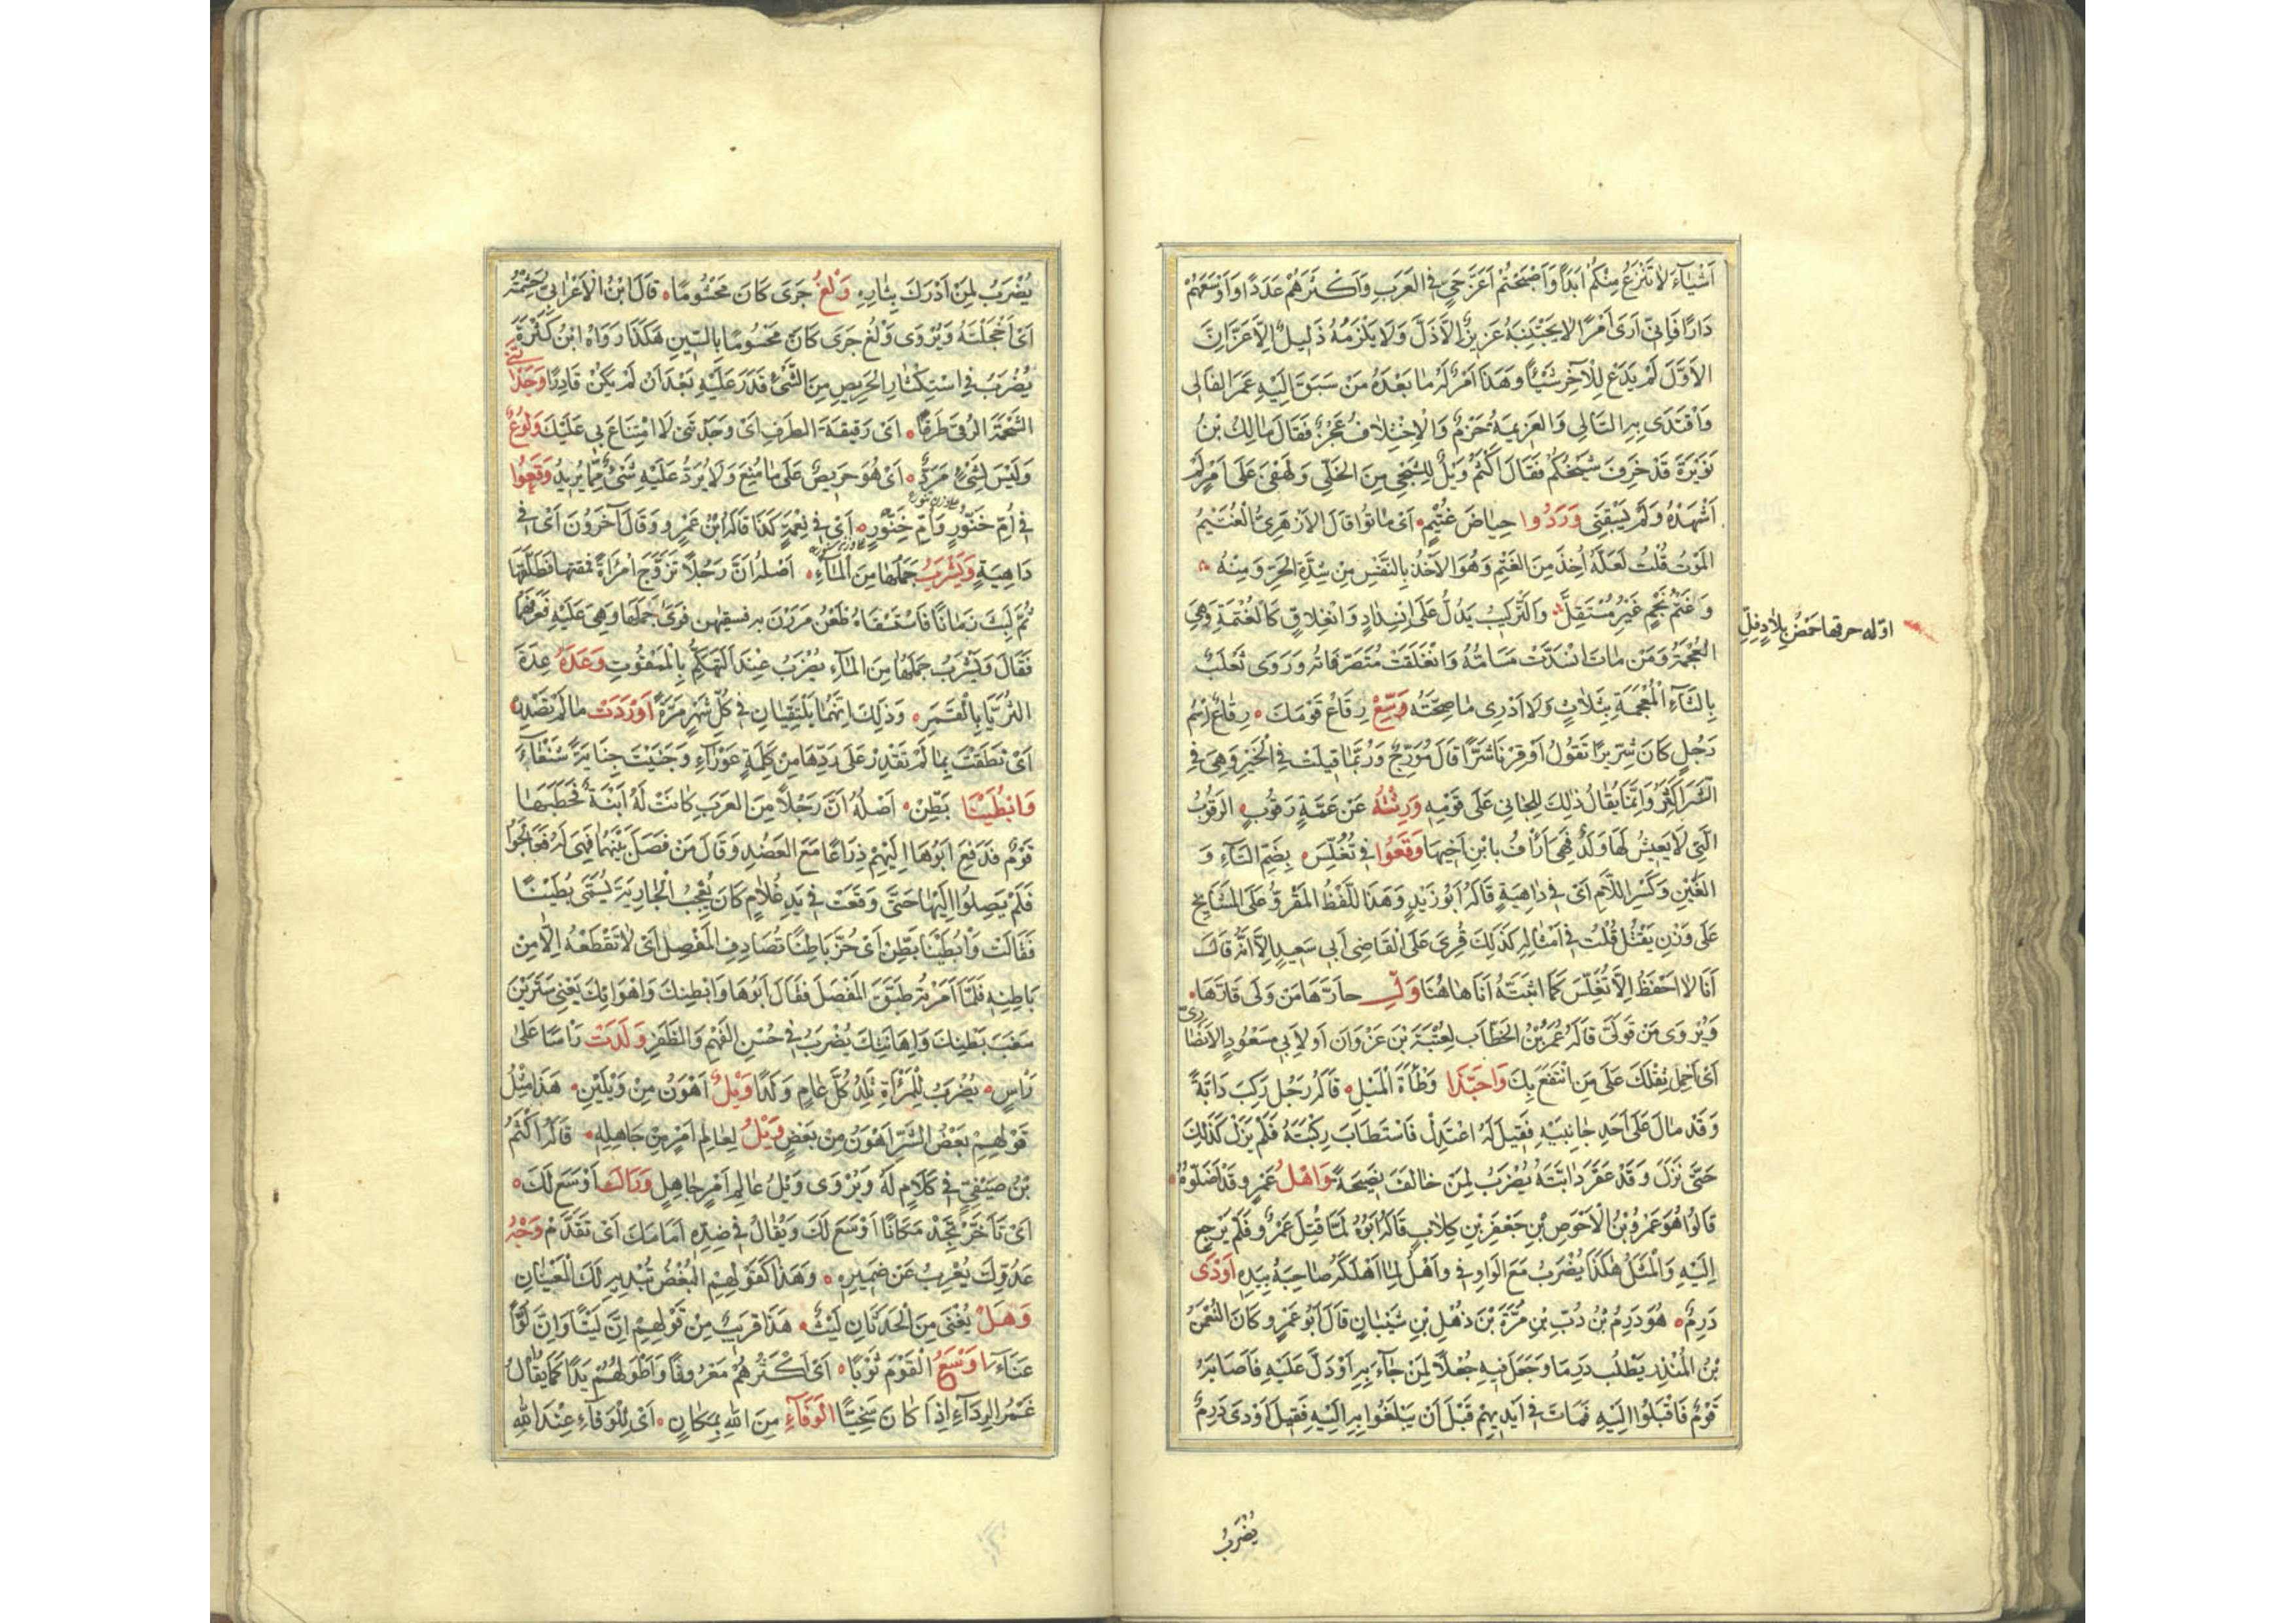 اَشْيَآءَ لَا تَنْزِعُ مِنْكُمْ اَبَدًا وَاَصْبَحْتُمْ اَعَزَّ حَيٍّ فِي الْعَرَبِ وَاَكْثَرَهُمْ عَدَدًا وَاَوْسَعَهُمْ
دَارًا فَاِنِّي اَرَى اَمْرًا لَا يَجْتَنِبُهُ عَزِيزٌ اِلَّا ذَلَّ وَلَا يَلْزَمُهُ ذَلِيلٌ اِلَّا عَزَّ اِنَّ
الْاَوَّلَ لَمْ يَدَعْ لِلْآخِرِ شَيْئًا وَهَذَا اَمْرٌ لَهُ مَا بَعْدَهُ مَنْ سَبَقَ اِلَيْهِ غَمَرَ الْفَالِى
وَاقْتَدَى بِهِ التَّالِى وَالْعَزِيمَةُ حَزْمٌ وَالْاِخْتِلَافُ عَجْزٌ فَقَالَ مَالِكُ بْنُ
نُوَيْرَةَ قَدْ خَرِفَ شَيْخُكُمْ فَقَالَ اَكْثَمُ وَيْلٌ لِلشَّجِيِّ مِنَ الْخَلِيِّ وَلَهْفِى عَلَى اَمْرٍ لَمْ
اَشْهَدْهُ وَلَمْ يَسْبِقْنِى وَرَدُوا حِيَاضَ غُتَيْمٍ اَىْ مَاتُوا قَالَ الْاَزْهَرِىُّ الْغُتَيْمُ
الْمَوْتُ قُلْتُ لَعَلَّهُ اُخِذَ مِنَ الْغَتْمِ وَهُوَ الْاَخْذُ بِالنَّفَسِ مِنْ شِدَّةِ الْحَرِّ وَمِنْهُ
وَغَتْمُ نَجْمٍ غَيْرُ مُسْتَقِلٍّ وَالتَّرْكِيبُ يَدُلُّ عَلَى انْسِدَادٍ وَانْغِلَاقٍ كَالْغُتْمَةِ وَهِىَ
اوّله حرقها حَمْضُ بِلَادٍ فِلِّ
الْعُجْمَةُ وَمَنْ مَاتَ انْسَدَّتْ مَسَامُّهُ وَانْغَلَقَتْ مُتَصَرَّفَاتُهُ وَرَوَى ثَعْلَبٌ
بِالثَّاءِ الْمُعْجَمَةِ بِثَلَاثٍ وَلَا اَدْرِى مَا صِحَّتُهُ وَسِّعْ رِقَاعَ قَوْمِكَ رِقَاعٌ اِسْمُ
رَجُلٍ كَانَ شِرِّيرًا تَقُولُ اَوْقِرْنَا شَرًّا قَالَ مُوَرِّجٌ وَرُبَّمَا قِيلَتْ فِى الْخَيْرِ وَهِىَ فِى
الشَّرِّ اَكْثَرُ وَاِنَّمَا يُقَالُ ذٰلِكَ لِلْجَانِى عَلَى قَوْمِهِ وَرِثْتُهُ عَنْ عَمَّةٍ رَقُوبٍ الرَّقُوبُ
الَّتِى لَا يَعِيشُ لَهَا وَلَدٌ فَهِىَ اَرْاَفُ بِابْنِ اَخِيهَا وَقَعُوا فِى تُغُلِّسَ بِضَمِّ التَّاءِ وَ
الْغَيْنِ وَكَسْرِ اللَّامِ اَىْ فِى دَاهِيَةٍ قَالَهُ اَبُو زَيْدٍ وَهَذَا اللَّفْظُ الْمَقْرُوُّ عَلَى الْمَشَايِخِ
عَلَى وَزْنِ يَقْتُلُ قُلْتُ فِى اَمْثَالِهِ كَذٰلِكَ قُرِئَ عَلَى الْقَاضِى اَبِى سَعِيدٍ اِلَّا اَنَّهُ قَالَ
اَنَا لَا اَحْفَظُ اِلَّا تُغُلِّسَ كَمَا اَثْبَتَّهُ اَنَا هٰاهُنَا وَلِّ حَارَّهَا مَنْ وَلِىَ قَارَّهَا
وَيُرْوَى مَنْ تَوَلَّى قَالَهُ عُمَرُ بْنُ الْخَطَّابِ لِعُتْبَةَ بْنِ غَزْوَانَ اَوْ لِاَبِى مَسْعُودٍ الْاَنْصَارِىِّ
اَىْ اِحْمِلْ ثِقْلَكَ عَلَى مَنِ انْتَفَعَ بِكَ وَاحَبَّذَا وَطْاَةُ الْمَيْلِ قَالَهُ رَجُلٌ رَكِبَ دَابَّةً
وَقَدْ مَالَ عَلَى اَحَدِ جَانِبَيْهِ فَقِيلَ لَهُ اعْتَدِلْ فَاسْتَطَابَ رِكْبَتَهُ فَلَمْ يَزَلْ كَذٰلِكَ
حَتَّى نَزَلَ وَقَدْ عَقَرَ دَابَّتَهُ يُضْرَبُ لِمَنْ خَالَفَ نَصِيحَةً وَاهْلُ عَمْرٍو قَدْ اَضَلُّوهُ
قَالُوا هُوَ عَمْرُو بْنُ الْاَحْوَصِ بْنِ جَعْفَرِ بْنِ كِلَابٍ قَالَهُ اَبُوهُ لَمَّا قُتِلَ عَمْرٌو فَلَمْ يَرْجِعْ
اِلَيْهِ وَالْمَثَلُ هٰكَذَا يُضْرَبُ مَعَ الْوَاوِ فِى وَاَهْلُ لِمَا اَهْلَكَهُ صَاحِبُهُ بِيَدِهِ اَوْدَى
دَرِمٌ هُوَ دَرِمُ بْنُ دُبِّ بْنِ مُرَّةَ بْنِ ذُهْلِ بْنِ شَيْبَانَ قَالَ اَبُو عَمْرٍو كَانَ النُّعْمٰنُ
بْنُ الْمُنْذِرِ يَطْلُبُ دَرِمًا وَجَعَلَ فِيهِ جُعْلًا لِمَنْ جَآءَ بِهِ اَوْ دَلَّ عَلَيْهِ فَاَصَابَهُ
قَوْمٌ فَاَقْبَلُوا اِلَيْهِ فَمَاتَ فِى اَيْدِيهِمْ قَبْلَ اَنْ يَبْلَغُوا بِهِ اِلَيْهِ فَقِيلَ اَوْدَى دَرِمٌ
يُضْرَبُ
يُضْرَبُ لِمَنْ اَدْرَكَ بِثَارِهِ وَلْغُ جَرَى كَانَ مَحْشُومًا قَالَ ابْنُ الْاَعْرَابِىِّ حَشَمْتُهُ
اَىْ اَخْجَلْتُهُ وَيُرْوَى وَلْغُ جَرَى كَانَ مَحْسُومًا بِالسِّينِ هَكَذَا رَوَاهُ ابْنُ كَثْرَةَ
يُضْرَبُ فِى اسْتِكْثَارِ الْحَرِيصِ مِنَ الشَّىْءِ قَدَرَ عَلَيْهِ بَعْدَ اَنْ لَمْ يَكُنْ قَادِرًا وَجَدْتَنِى
الشَّحْمَةَ الرُّقَّى طَرَفًا اَىْ رَقِيقَةَ الطَّرَفِ اَىْ وَجَدْتَنِى لَا امْتِنَاعَ بِى عَلَيْكَ وَلُوعٌ
وَلَيْسَ لِشَىْءٍ مَرَدٌّ اَىْ هُوَ حَرِيصٌ عَلَى مَا مُنِعَ وَلَا يُرَدُّ عَلَيْهِ شَىْءٌ مِمَّا يُرِيدُ وَقَعُوا
فِى اُمِّ خَنُّورٍ وَاُمِّ خِنَّوْرٍ اَىْ فِى نِعْمَةٍ كَذَا قَالَهُ ابْنُ عَمْرٍو وَقَالَ آخَرُونَ اَىْ فِى
دَاهِيَةٍ وَيَشْرَبُ جَمَلُهَا مِنَ الْمَآءِ اَصْلُهُ اَنَّ رَجُلًا تَزَوَّجَ امْرَاَةً فمقتها فَطَلَّقَهَا
ثُمَّ لَبِثَ زَمَانًا فَاسْتَسْقَاهُ ظُعُنٌ مَرَرْنَ بِهِ فسقيهن فَرَاَى جَمَلَهَا وَهِىَ عَلَيْهِ فَعَرَفَهَا
فَقَالَ وَيَشْرَبُ جَمَلُهَا مِنَ الْمَآءِ يُضْرَبُ عِنْدَ التَّهَكُّمِ بِالْمَمْقُوتِ وَعَدَهُ عِدَةَ
الثُّرَيَّا بِالْقَمَرِ وَذٰلِكَ اَنَّهُمَا يَلْتَقِيَانِ فِى كُلِّ شَهْرٍ مَرَّةً اَوْرَدَتْ مَا لَمْ تَصْدِرْ
اَىْ نَطَقْتَ بِمَا لَمْ تَقْدِرْ عَلَى رَدِّهَا مِنْ كَلِمَةٍ عَوْرَآءَ وَجَنَيْتَ جِنَايَةً شَنْعَآءَ
وَابُطَيْنَا بَطِّنْ اَصْلُهُ اَنَّ رَجُلًا مِنَ الْعَرَبِ كَانَتْ لَهُ ابْنَةٌ فَخَطَبَهَا
قَوْمٌ فَدَفَعَ اَبُوهَا اِلَيْهِمْ ذِرَاعًا مَعَ الْعَضُدِ وَقَالَ مَنْ فَصَلَ بَيْنَهُمَا فَهِىَ لَهُ فَعَالَجُوا
فَلَمْ يَصِلُوا اِلَيْهَا حَتَّى وَقَعَتْ فِى يَدِ غُلَامٍ كَانَ يُعْجِبُ الْجَارِيَةَ يُسَمَّى بُطَيْنًا
فَقَالَتْ وَابُطَيْنَا بَطِّنْ اَىْ حُزَّ بَاطِنًا تُصَادِفِ الْمَفْصِلَ اَىْ لَا تَقْطَعْهُ اِلَّا مِنْ
بَاطِنِهِ فَلَمَّا اَمَرَتْهُ طَبَّقَ الْمَفْصَلَ فَقَالَ اَبُوهَا وَابَطِنِكِ وَاهْوَانِكِ يَعْنِى سَتَرَيْنَ
مَغَبَّةَ بَطْنِكِ وَاِهَانَتِكِ يُضْرَبُ فِى حُسْنِ الْفَهْمِ وَالظَّفَرِ وَلَدَتْ رَاْسًا عَلَى
رَاْسٍ يُضْرَبُ لِلْمَرْاَةِ تَلِدُ كُلَّ عَامٍ وَلَدًا وَيْلٌ اَهْوَنُ مِنْ وَيْلَيْنِ هَذَا مِثْلُ
قَوْلِهِمْ بَعْضُ الشَّرِّ اَهْوَنُ مِنْ بَعْضٍ وَيْلٌ لِعَالِمِ اَمْرٍ مِنْ جَاهِلِهِ قَالَهُ اَكْثَمُ
بْنُ صَيْفِىٍّ فِى كَلَامٍ لَهُ وَيُرْوَى وَيْلُ عَالِمِ اَمْرٍ جَاهِلٍ وَرَاءَكَ اَوْسَعُ لَكَ
اَىْ تَاَخَّرْ تَجِدْ مَكَانًا اَوْسَعَ لَكَ وَيُقَالُ فِى ضِدِّهِ اَمَامَكَ اَىْ تَقَدَّمْ وَجْهُ
عَدُوِّكَ يُعْرِبُ عَنْ ضَمِيرِهِ وَهَذَا كَقَوْلِهِمْ الْبُغْضُ تُبْدِيهِ لَكَ الْعَيْنَانِ
وَهَلْ يُغْنَى مِنَ الْحَدَثَانِ لَيْتٌ هَذَا قَرِيبٌ مِنْ قَوْلِهِمْ اِنَّ لَيْتًا وَاِنَّ لَوًّا
عَنَآءُ اَوْسَعُ الْقَوْمِ ثَوْبًا اَىْ اَكْثَرُهُمْ مَعْرُوفًا وَاَطْوَلُهُمْ يَدًا كَمَا يُقَالُ
غَمْرُ الرِّدَآءِ اِذَا كَانَ سَخِيًّا الْوَفَآءُ مِنَ اللّٰهِ بِمَكَانٍ اَىْ لِلْوَفَآءِ عِنْدَ اللّٰهِ